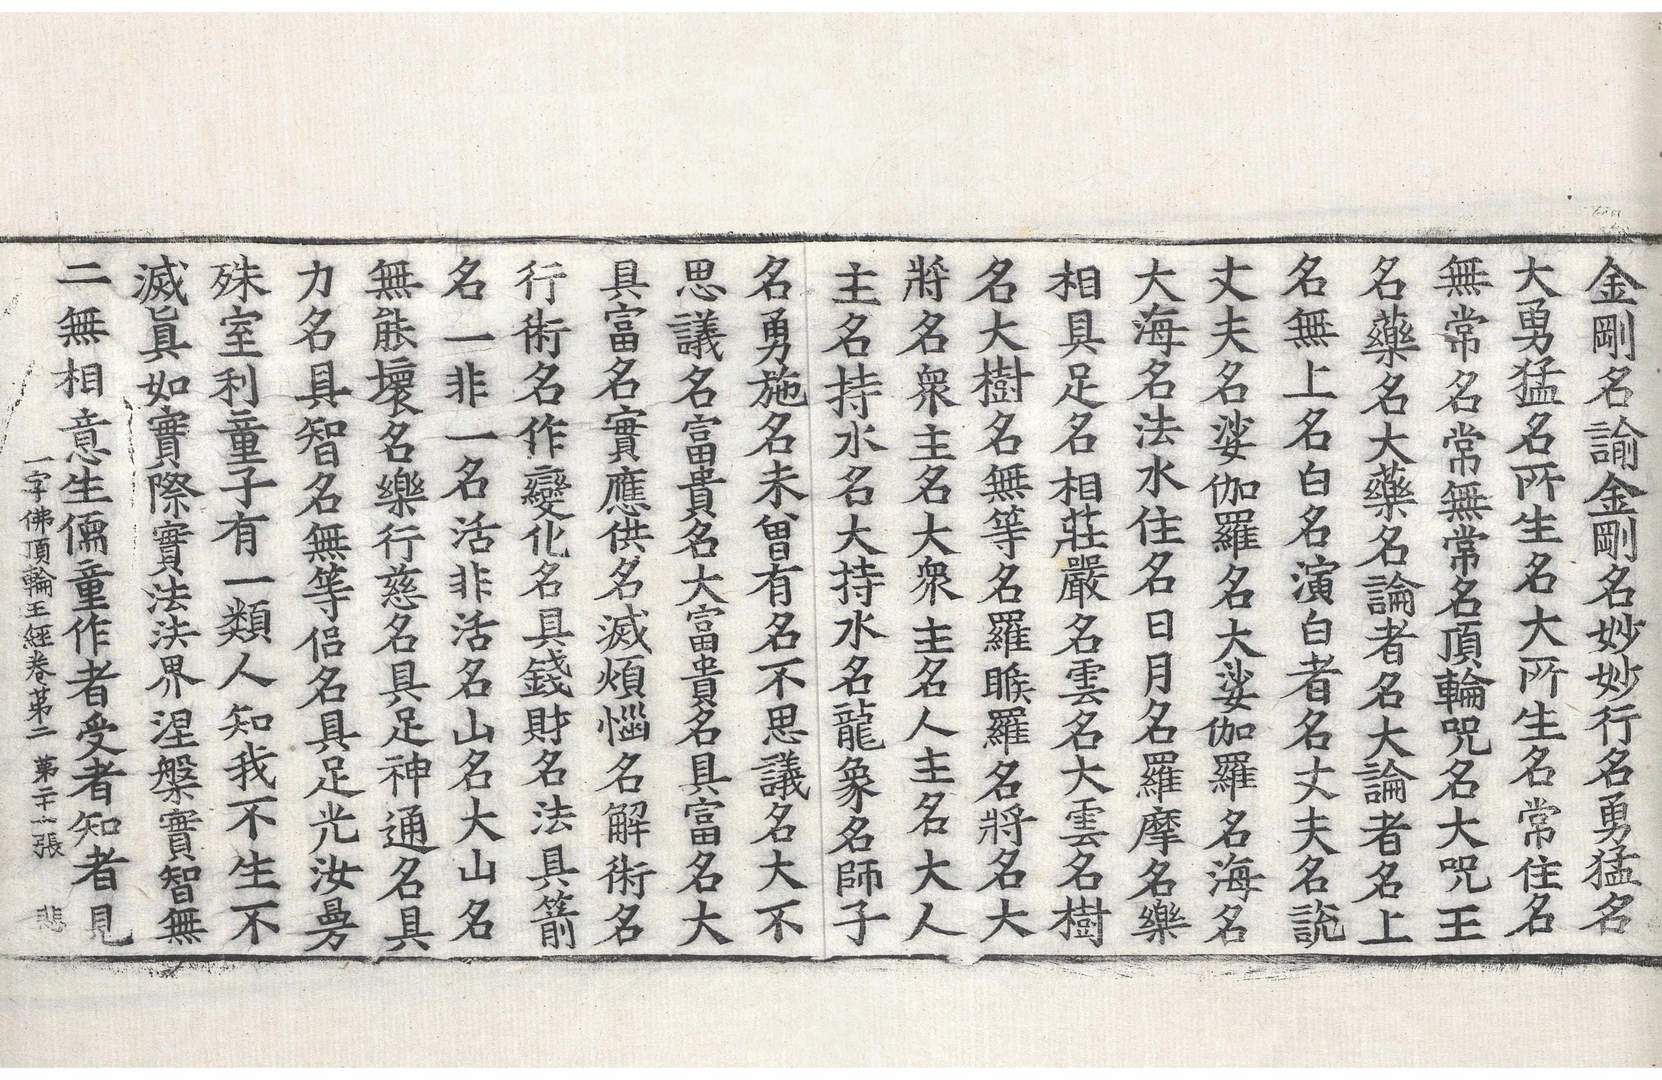 金剛名諭金剛名妙妙行名勇猛名
大勇猛名所生名大所生名常住名
無常名常無常名頂輪咒名大咒王
名藥名大藥名論者名大論者名上
名無上名白名演白者名丈夫名說
丈夫名娑伽羅名大娑伽羅名海名
大海名法水住名日月名羅摩名樂
相具足名相莊嚴名雲名大雲名樹
名大樹名無等名羅睺羅名將名大
將名衆主名大衆主名人主名大人
主名持水名大持水名龍象名師子
名勇施名未曾有名不思議名大不
思議名富貴名大富貴名具富名大
具富名實應供名滅煩惱名解術名
行術名作變化名具錢財名法具箭
名一非一名活非活名山名大山名
無能壞名樂行慈名具足神通名具
力名具智名無等侶名具足光汝曼
殊室利童子有一類人知我不生不
滅眞如實際實法法界涅槃實智無
二無相意生儒童作者受者知者見
一字佛頂輪王經卷苐二 苐二十張 悲